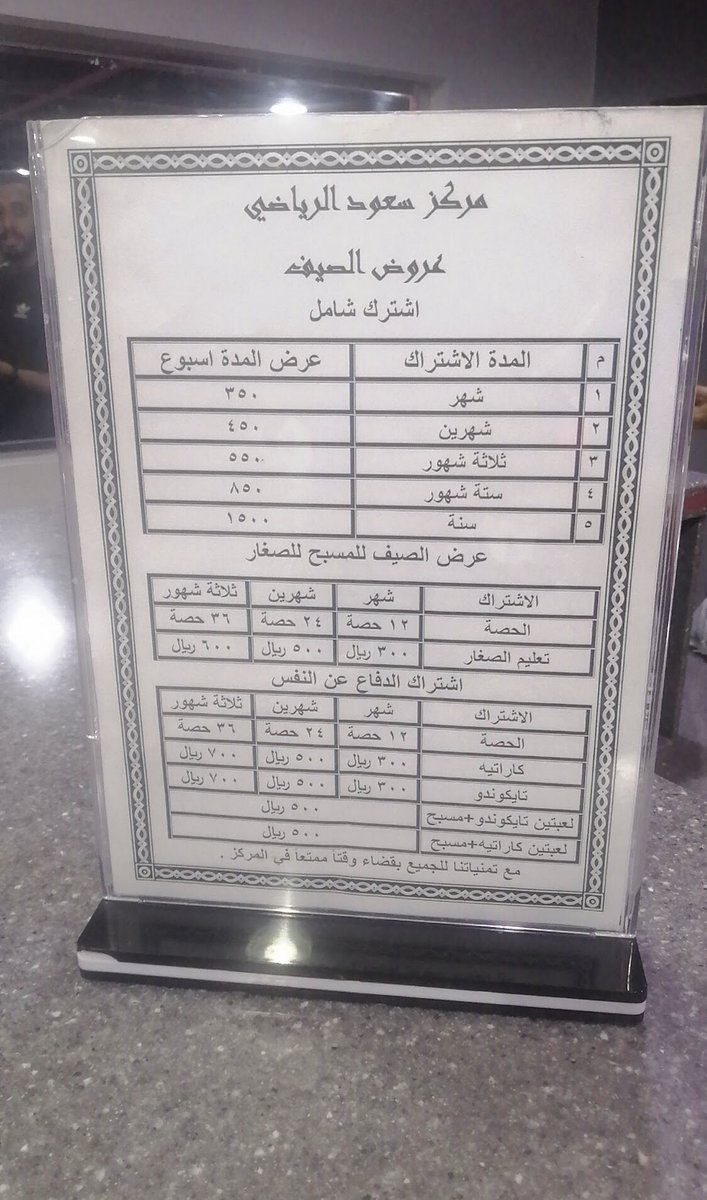 مركز سعود الرياضي
عروض الصيف
اشترك شامل
م المدة الاشتراك عرض المدة اسبوع
١ شهر ٣٥٠
٢ شهرين ٤٥٠
٣ ثلاثة شهور ٥٥٠
٤ ستة شهور ٨٥٠
٥ سنة ١٥٠٠
عرض الصيف للمسبح للصغار
الاشتراك شهر شهرين ثلاثة شهور
الحصة ١٢ حصة ٢٤ حصة ٣٦ حصة
تعليم الصغار ٣٠٠ ريال ٥٠٠ ريال ٦٠٠ ريال
اشتراك الدفاع عن النفس
الاشتراك شهر شهرين ثلاثة شهور
الحصة ١٢ حصة ٢٤ حصة ٣٦ حصة
كاراتيه ٣٠٠ ريال ٥٠٠ ريال ٧٠٠ ريال
تايكوندو ٣٠٠ ريال ٥٠٠ ريال ٧٠٠ ريال
لعبتين تايكوندو+مسبح ٥٠٠ ريال
لعبتين كاراتيه+مسبح ٥٠٠ ريال
مع تمنياتنا للجميع بقضاء وقتاً ممتعاً في المركز .